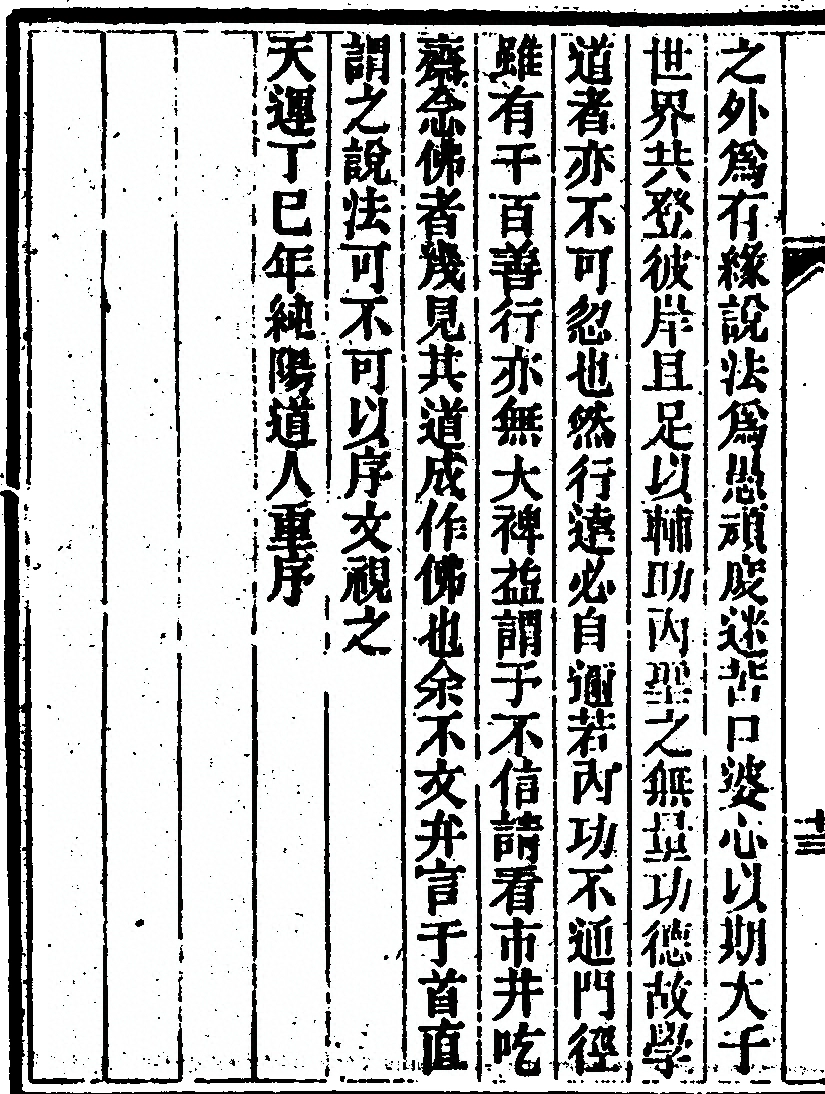 之外爲有緣說法爲愚頑度迷苦口婆心以期大千
世界共登彼岸且足以輔助內聖之無量功德故學
道者亦不可忽也然行遠必自邇若內功不通門徑
雖有千百善行亦無大裨益謂予不信請看市井吃
齋念佛者幾見其道成作佛也余不文弁言于首直
謂之說法可不可以序文視之
天運丁巳年純陽道人重序